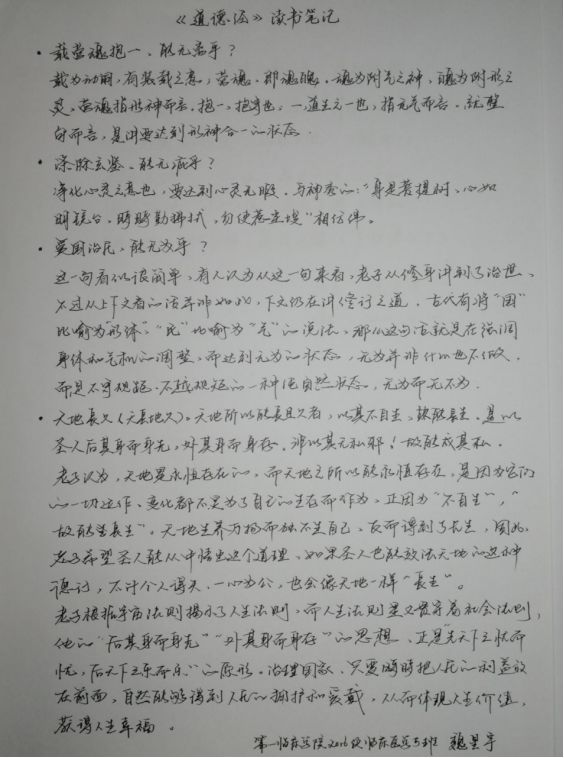 《道德经》读书笔记
• 载营魂抱一、能无离乎？
载为动词，有装载之意，营魂，即魂魄。魂为附气之神，魄为附形之
灵。营魂指形神而言。抱一，抱守也，一，道生之一也，指元气而言。就整
句而言，是讲要达到形神合一的状态。
• 涤除玄鉴、能无疵乎？
净化心灵之意也，要达到心灵无暇，与神秀的："身是菩提树、心如
明镜台、时时勤拂拭，勿使惹尘埃"相仿佛。
• 爱国治民，能无为乎？
这一句看似很简单，有人认为从这一句来看，老子从修身讲到了治世、
不过从上下文看的话并非如此，下文仍在讲修行之道。古代有将"国"
比喻为"形体"，"民"比喻为"气"的说法。那么这句话就是在强调
身体和气机的调整，而达到无为的状态，无为并非什么也不做，
而是不守规矩、不越规矩的一种纯自然状态，无为而无不为。
• 天地长久（天长地久）。天地所以能长且久者，以其不自生，故能长生。是以
圣人后其身而身先，外其身而身存。非以其无私邪！故能成其私。
老子认为，天地是永恒存在的，而天地之所以能永恒存在，是因为它们
的一切运作、变化都不是为了自己的生存而作为、正因为"不自生"，"
故能长生"。天地生养万物而独不生自己、反而得到了长生，因此
老子希望圣人能从中悟出这个道理、如果圣人也能效法天地的这种
德行，不计个人得失、一心为公，也会像天地一样"长生"。
老子根据宇宙法则揭示了人生法则，而人生法则里又贯穿着社会法则，
他的"后其身而身先""外其身而身存"的思想、正是"先天下之忧而
忧，后天下之乐而乐"的原形。治理国家、只要时时把人民的利益放
在前面，自然能够得到人民的拥护和爱戴，从而体现人生价值，
获得人生幸福。
第一临床学院2016级临床医学5班 魏星宇